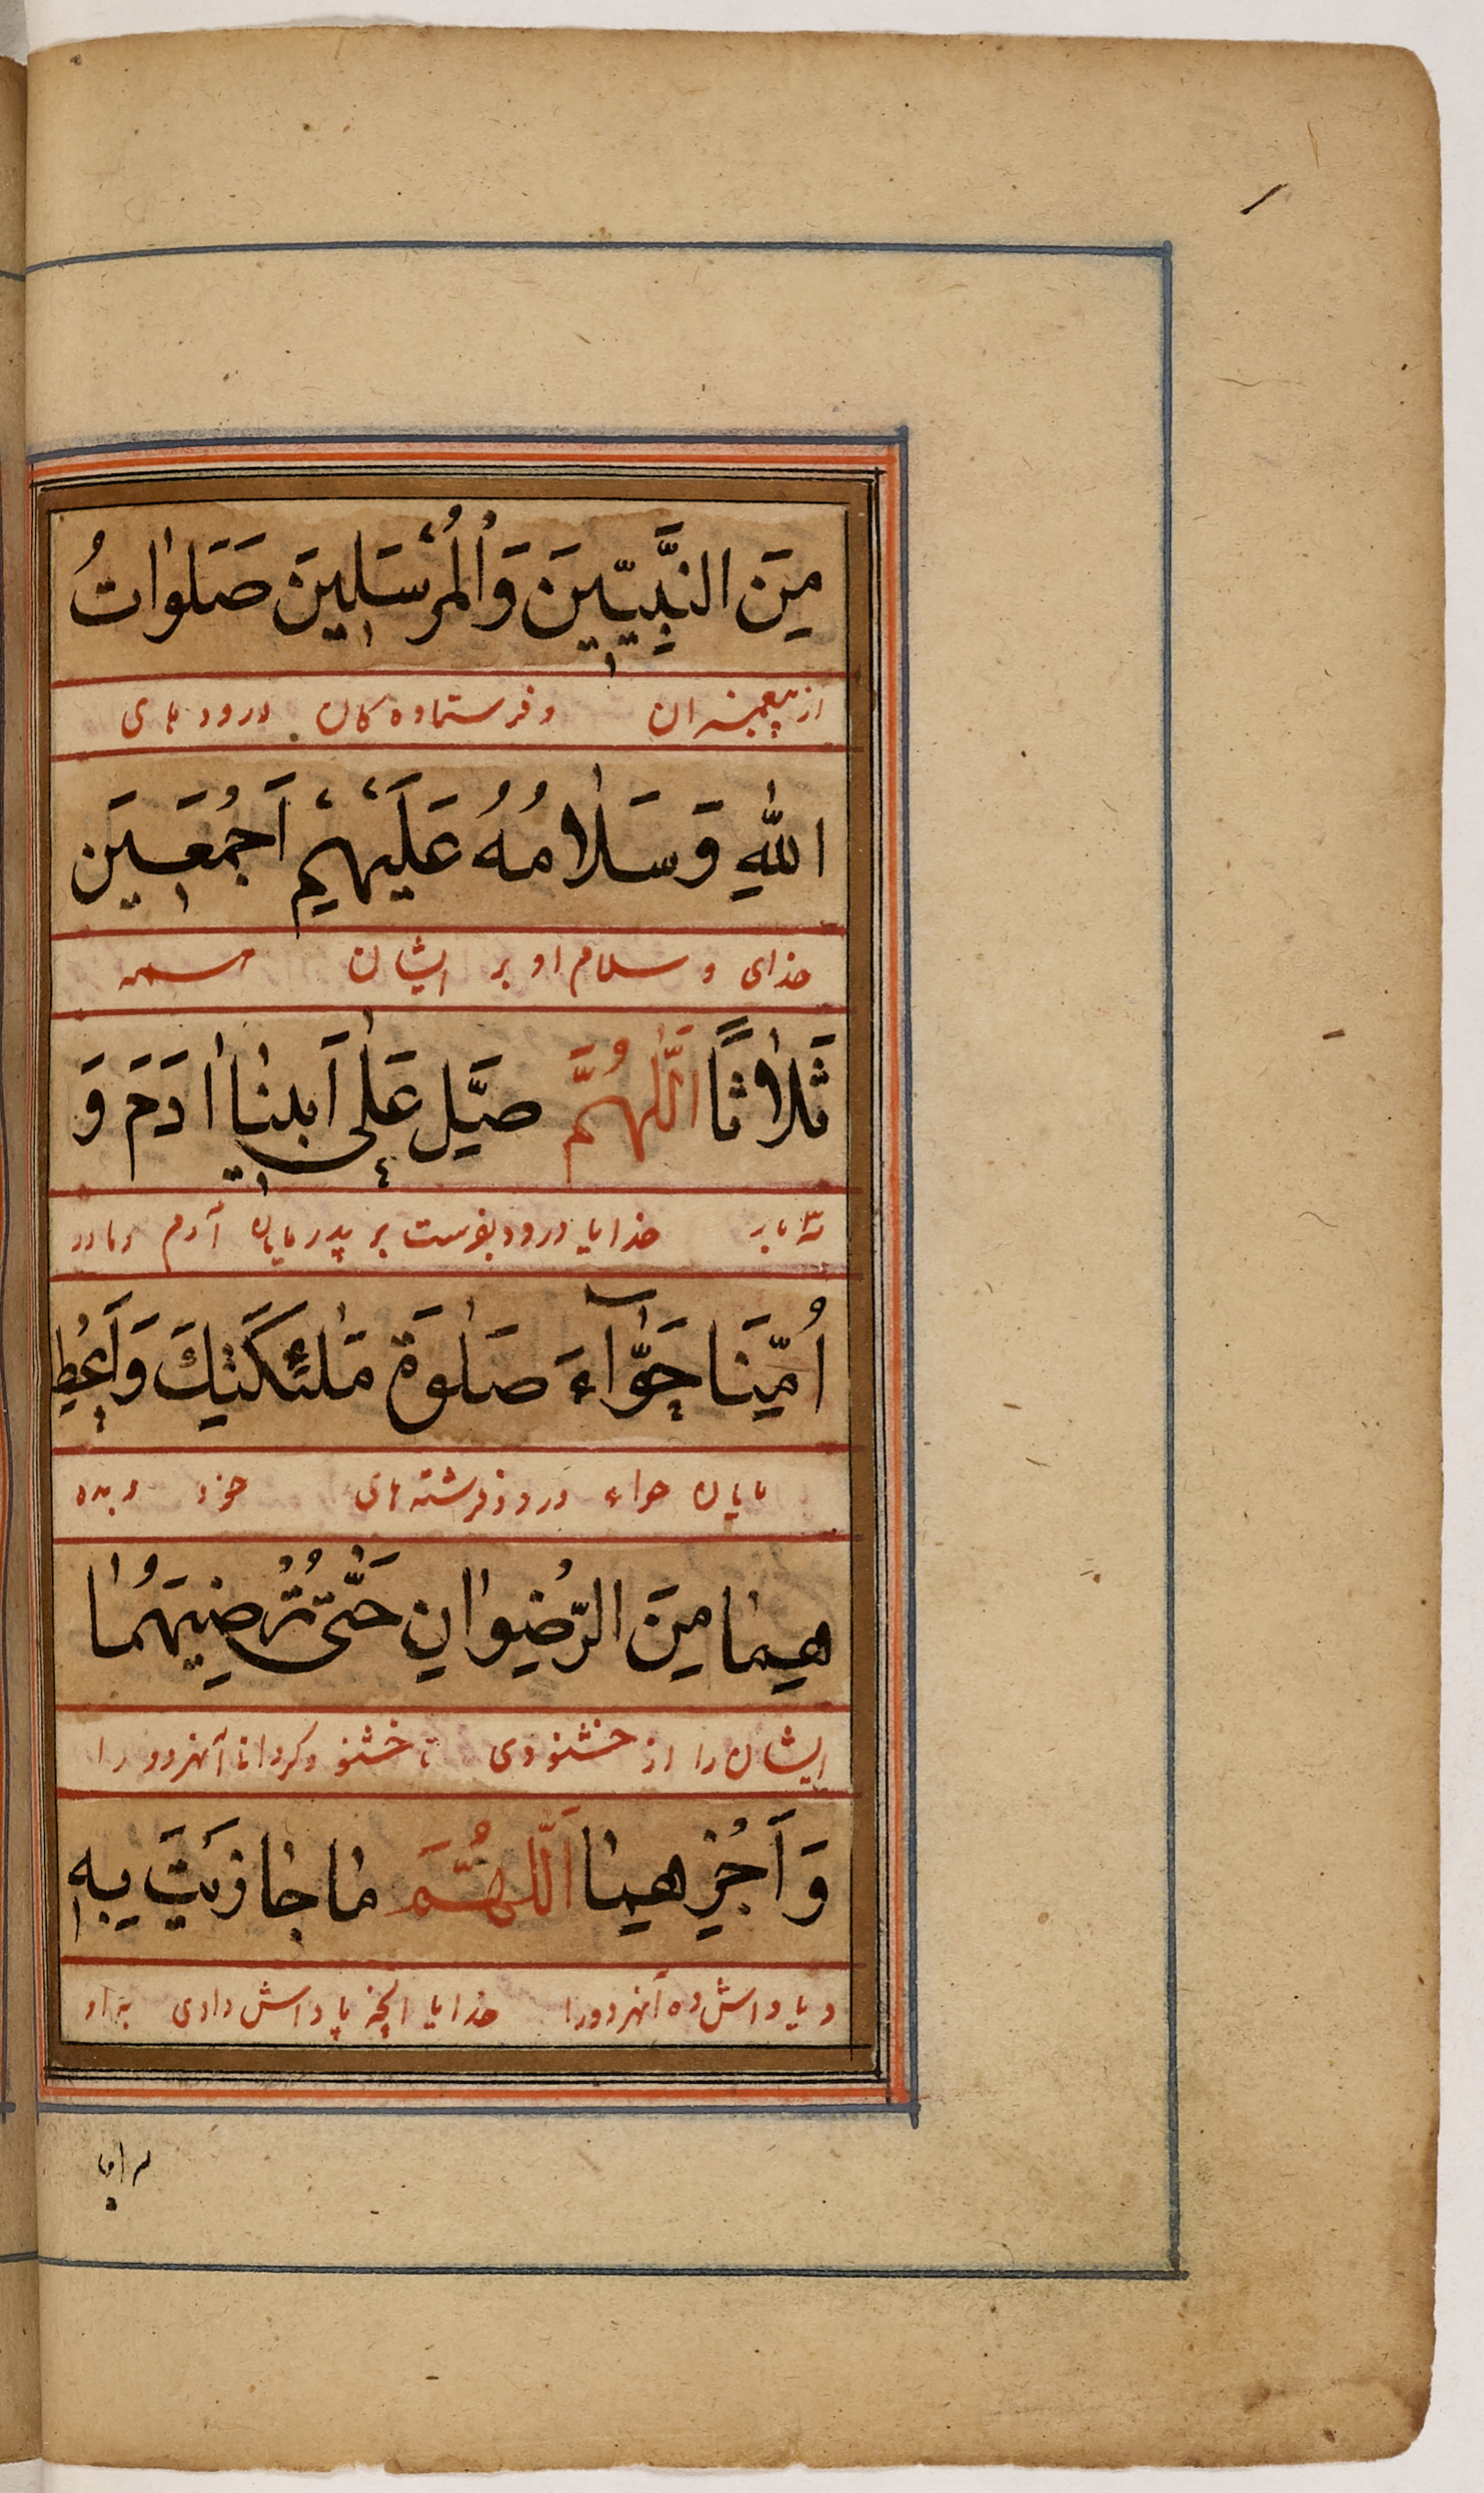 مِنَ النَّبِيّينَ وَالْمُرْسَلينَ صَلَواتُ
از پیغمبران و فرستاده کان درود های
اللهِ وَسَلامُهُ عَلَيْهِمْ اَجْمَعينَ
خدای و سلام او بر ایشان همه
ثَلاثًا اَللّهُمَّ صَلِّ عَلى اَبينا ادَمَ وَ
سه بار خدایا درود بفرست بر پدر مایان آدم و مادر
اُمِّنَا حَوّآءَ صَلوةَ مَلئِكَتِكَ وَاَعْطِ
مایان حواء درود فرشته های خود و بده
هِما مِنَ الرِّضْوانِ حَتّى تُرْضِيَهُما
ایشان را از خشنودی تا خشنود کردانی آنهر دو را
وَاَجْزِهِما اَللّهُمَّ ما جازَيْتَ بِه
و پاداش ده آنهر دو را خدایا انچه پاداش دادی به او